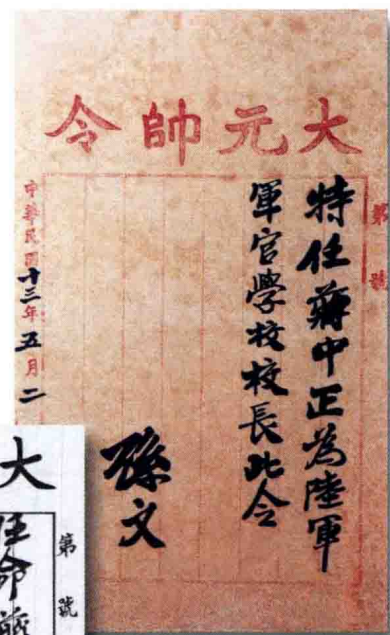 大元帥令
第　號
特任蔣中正為陸軍
軍官學校校長此令
孫文
中華民國十三年五月二
大
第　號
任命蔣